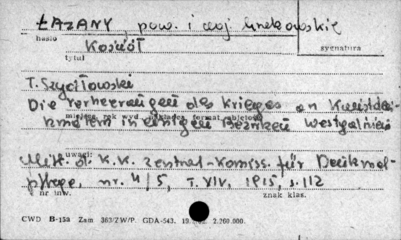 ŁAZANY, pow. i woj. krakowskie
hasło
Kościół
sygnatura
tytuł
T. Szydłowski
Die Verheerungen des Krieges an Kunstdenk-
miejsce, rok wyd., nakładca, format, objętość
kmälern in einigen Bezirken Westgaliziens
uwagi:
Mitt. d. K.K. Zentral-Komiss. für Denkmal-
pflege, nr. 4/5, T. XIV, 1915, s. 112
nr inw.
znak klas.
CWD B-15a Zam 363/ZW/P. GDA-543. 2.200.000.